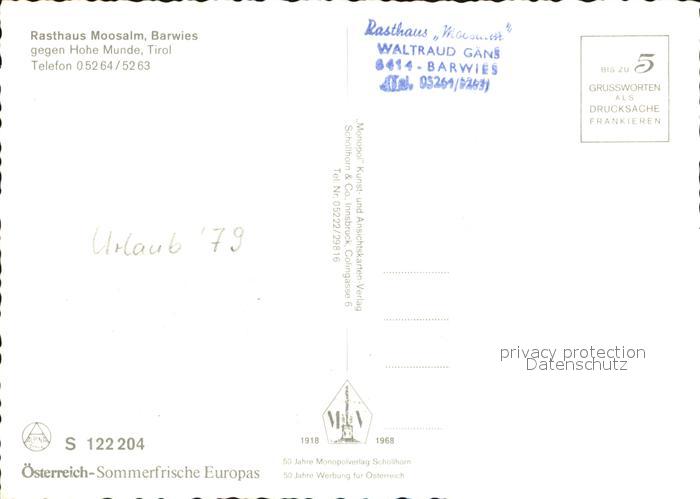 Rasthaus Moosalm, Barwies
gegen Hohe Munde, Tirol
Telefon 05264/5263
Rasthaus „Moosalm"
WALTRAUD GÄNS
6414 - BARWIES
Tel. 05264/5263
BIS ZU 5
GRUSSWORTEN
ALS
DRUCKSACHE
FRANKIEREN
„Monopol" Kunst- und Ansichtskarten-Verlag
Schöllhorn & Co. Innsbruck, Colingasse 6
Tel. Nr. 05222/29816
Urlaub '79
privacy protection
Datenschutz
M V
1918 1968
S 122 204
Österreich-Sommerfrische Europas
50 Jahre Monopolverlag Schöllhorn
50 Jahre Werbung für Österreich